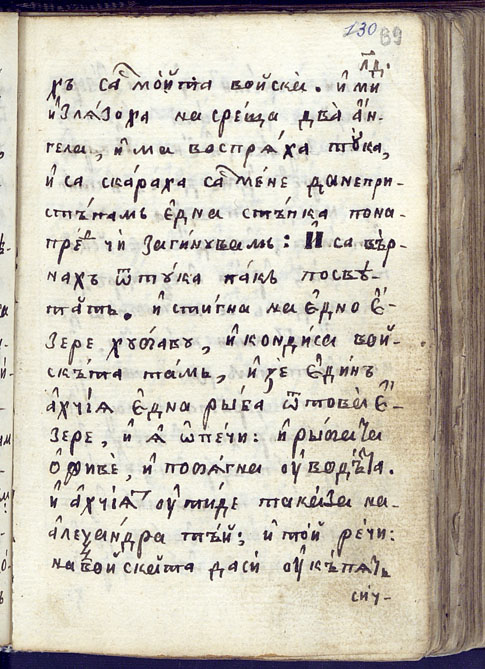 130 69
л҃д.
хъ са мо́йта войска̀. и҆ ми
и҆злѧ́зоха на среща два̀ а҆н-
гела, и҆ ма воспрѧ́ха тꙋка,
и҆ са ска́раха са мене да непри-
стъпамь е҆дна стъпка пона-
пре́ чи загинꙋвамь: И са вър-
нахъ ѿтꙋка пакь посвѣ-
тътъ. и҆ стигна на е҆дно е҆-
зере хꙋбаву, и҆ кондиса вой-
ската тамь, и҆ зѐ е҆ди́нъ
а҆хчїѧ е҆дна рыба ѿ това̀ е҆-
зере, и҆ ѧ҆ ѡ҆пе́чи: и҆ рыбата
ѻ҆живѐ, и҆ побѧгна оу҆ водѣта.
и҆ а҆хчїѧт оу҆тиде така́за на-
а҆леѯа́ндра тъй; и҆ то́й ре́чи:
на войската даси́ оу҆къпѧть
сич-